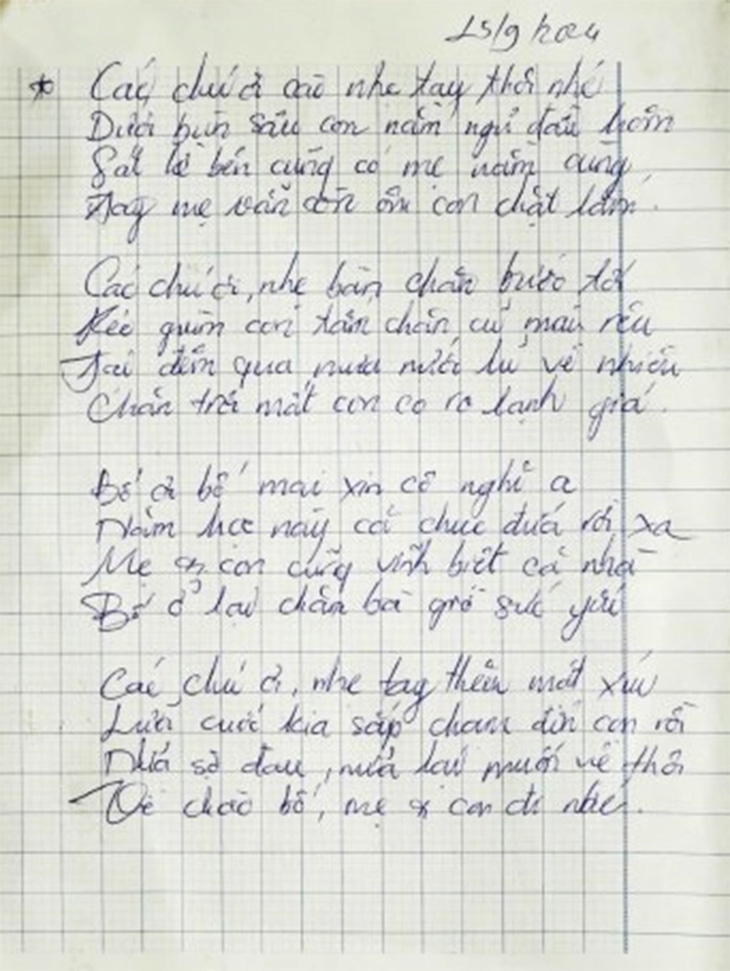 25/9/2024
* Các chú ơi đào nhẹ tay thôi nhé
Dưới bùn sâu con nằm ngủ đấy hơn
Sát kề bên cũng có mẹ nằm cùng
Tay mẹ vẫn còn ôm con chặt lắm.
Các chú ơi, nhẹ bàn chân bước tới
Kéo giùm con tấm chăn cũ màu rêu
Tại đêm qua mưa nước lũ về nhiều
Chân trời mắt con co ro lạnh giá.
Bố ơi bố mai xin cô nghỉ ạ
Năm học này cả chục đứa rời xa
Mẹ & con cũng vĩnh biệt cả nhà
Bố ở lại chăm bà giờ sức yếu
Các chú ơi, nhẹ tay thêm một xíu
Lưỡi cuốc kia sắp chạm đến con rồi
Nửa sợ đau, nửa lại muốn về thôi
Về chào bố, mẹ & con đi nhé.